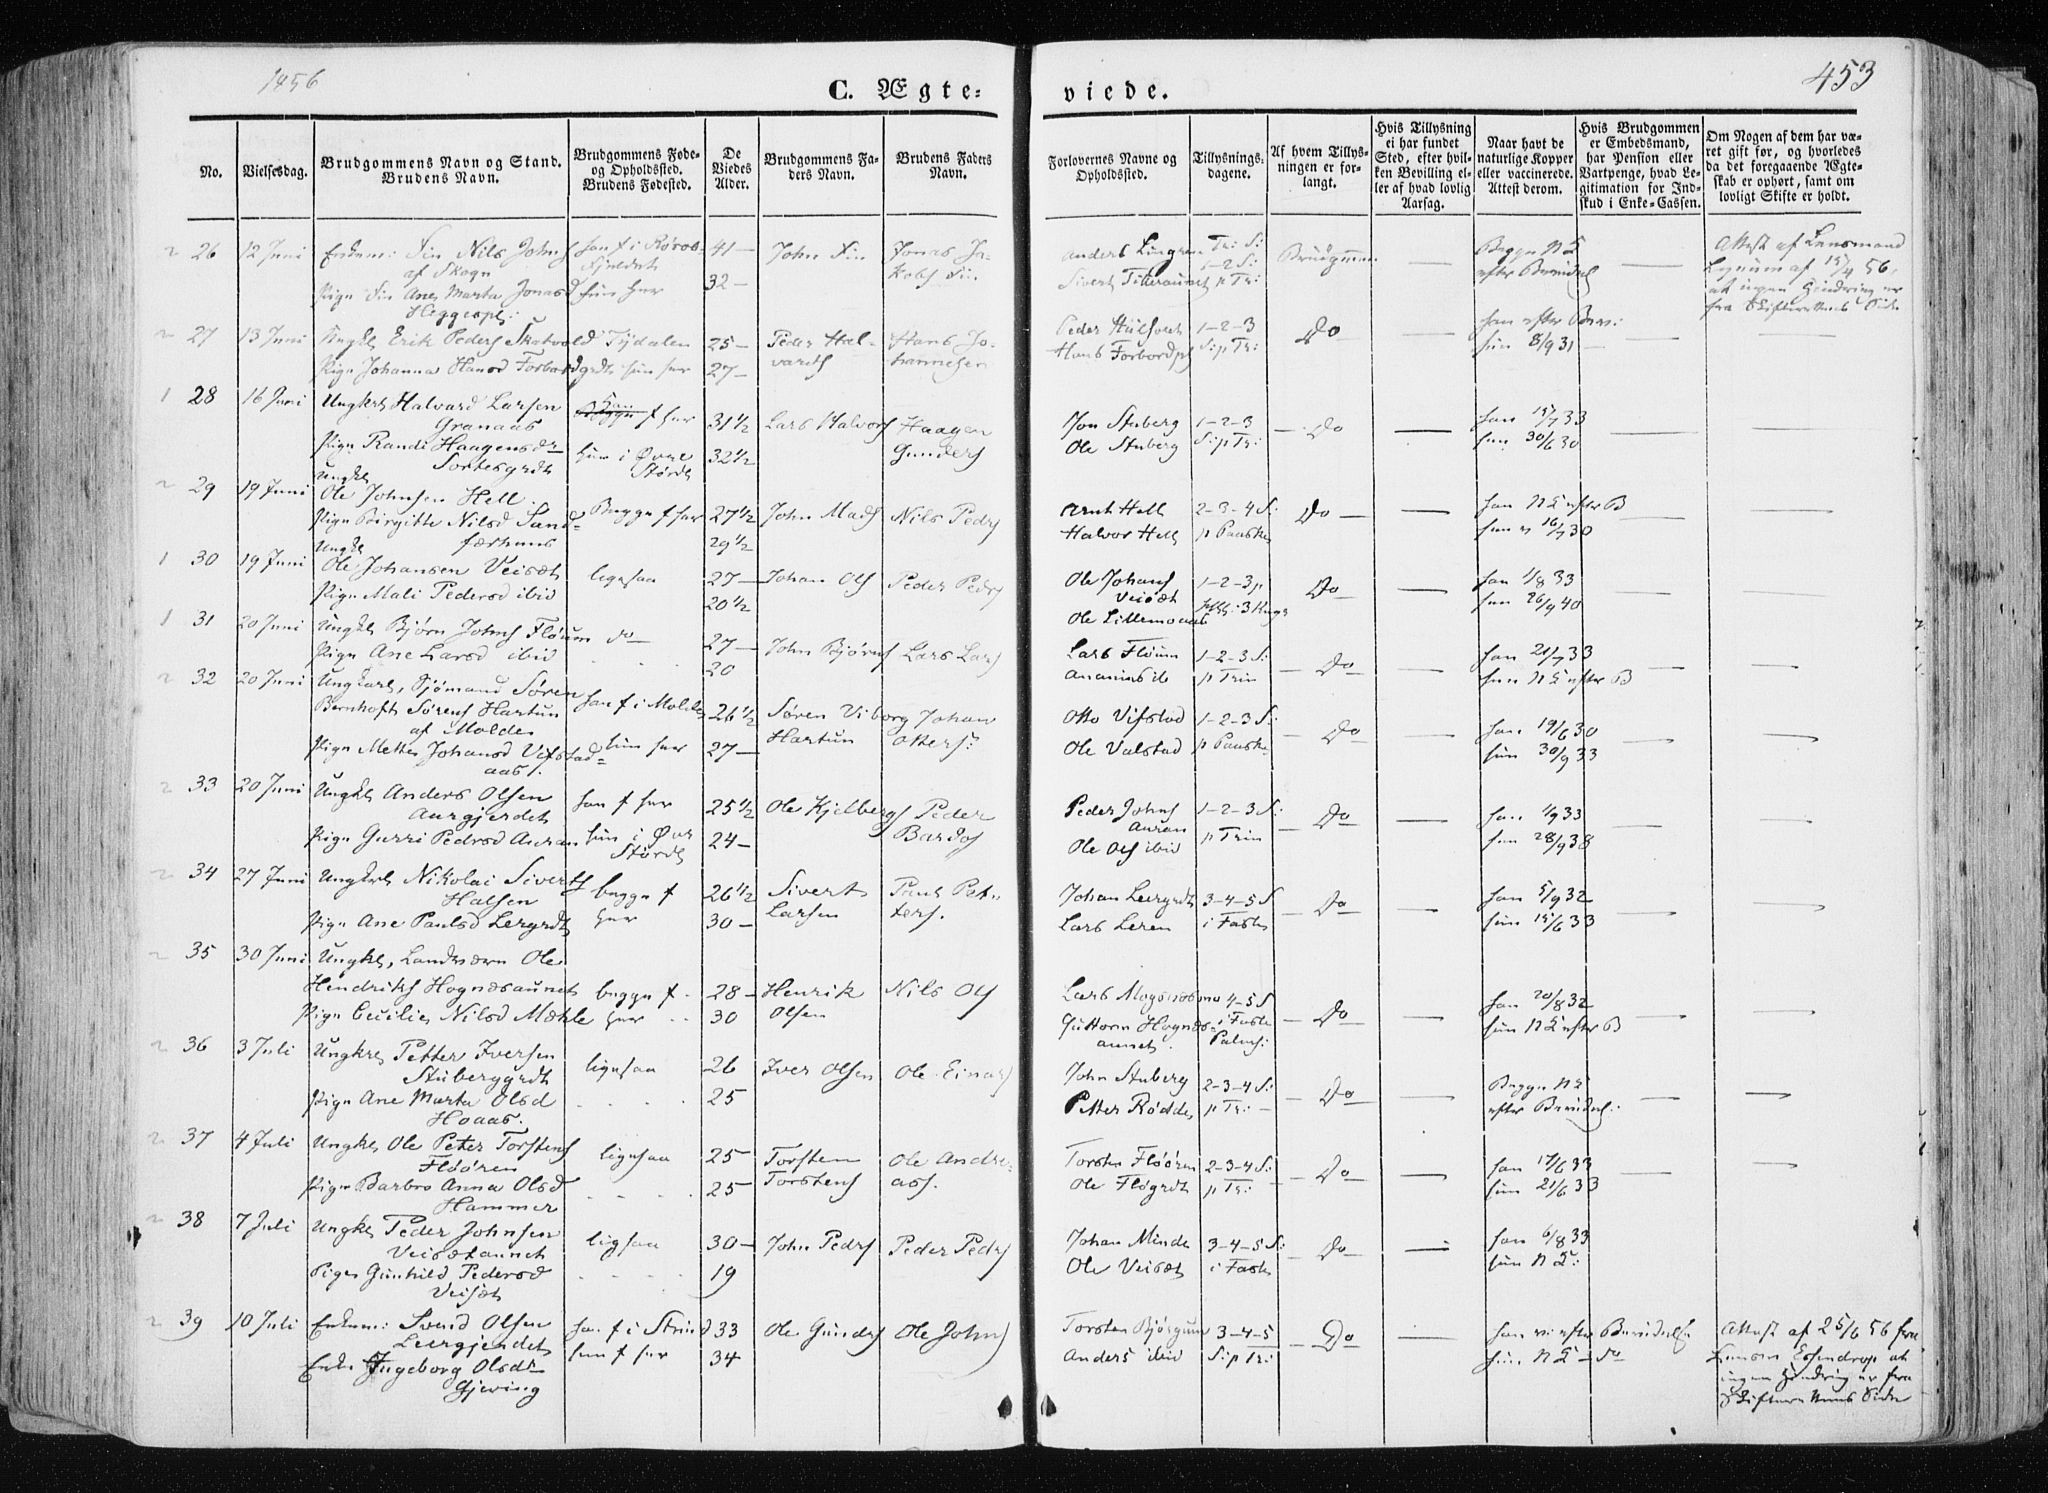 1856
C. Ægte-
viede.
453
No.
Vielsesdag.
Brudgommens Navn og Stand.
Brudens Navn.
Brudgommens Føde-
og Opholdssted.
Brudens Fødested.
De
Viedes
Alder.
Brudgommens Fa-
ders Navn.
Brudens Faders
Navn.
Forlovernes Navne og
Opholdssted.
Tillysnings-
dagene.
Af hvem Tillys-
ningen er for-
langt.
Hvis Tillysning
ei har fundet
Sted, efter hvil-
ken Bevilling el-
ler af hvad lovlig
Aarsag.
Naar havt de
naturlige Kopper
eller vaccinerede.
Attest derom.
Hvis Brudgommen
er Embedsmand,
har Pension eller
Vartpenge, hvad Le-
gitimation for Ind-
skud i Enke-Cassen.
Om Nogen af dem har væ-
ret gift før, og hvorledes
da det foregaaende Ægte-
skab er ophørt, samt om
lovligt Skifte er holdt.
26 12 Juni Enkem: Fin Nils Johns han f i Røros 41 — John Fin Jonas Ja-
af Skogn Fjeldet kobs Fin.
Pign Fin Ane Marta Jonasd hun her 32 —
Anders Lingren Tr: S: Brudgommen — Begge N E — Attest af Lensmand
Sivert p Tr: efter Lynum af 15/4 56,
at ingen Hindring er
fra Skifterettens Side
27 13 Juni Ungkl Erik Peders Skatvold Tydalen 25 — Peder Hal- Hans Jo-
Pign Johanna Hansd Forbordgrdt hun her 27 — vards hannesen
Peder 1-2-3 Do — han efter — —
Hans Forbordpl S: p Tr: hun 8/9 31 —
1 28 16 Juni Ungkrl Halvard Larsen Han f her 31 1/2 Lars Halvors Haagen
Granaas
Pign Randi Haagensdr hun i Øvre 32 1/2 Gunders
Sortesgrdt Størdt
Jon Stuberg 1-2-3 — Do — han 15/7 33 — —
Ole Stuberg S: p Tr: hun 30/6 30
29 19 Juni Ungkl
Ole Johnsen Hell. Begge f her 27 1/2 John Mads Nils Peds
Pign Birgitte Nilsd Sand- 29 1/2
færhuus
Arnt Hell 2-3-4 S Do — — han N E efter B —
Halvor Hell p Paaske hun v 16/7 30
1 30 19 Juni Ungkl
Ole Johansen Veisæt ligesaa 27 — Johan Ols Peder Peds
Pign Mali Pedersd ibid 20 1/2
Ole Johans 1-2-3 p Do — han 1/8 33 — —
Veisæt hun 26/9 40
Ole Lillemoaas
1 31 20 Juni Ungkl Bjørn Johns Fløum do — 27 — John Bjørns Lars Lars
Pign Ane Larsd ibid 20
Lars Fløum 1-2-3 S: — Do — han 21/7 33 — —
Ananias ib p Trin hun N E efter B
32 20 Juni Ungkarl, Sjømand Søren han f i Molde 26 1/2 Søren Viborg Johan
Bernhoft Sørens Hartun Hartun Otters:
af Molde
Pign Mette Johansd Vifstad- hun her 27 —
aas.
Otto Vifstad 1-2-3 S: — Do — han 19/6 30 — —
Ole Valstad p Paaske hun 30/9 33
33 20 Juni Ungkl Anders Olsen han f her 25 1/2 Ole Kjelbergs Peder
Aurgjerdet Bardos
Pign Gurri Pedersd Auran hun i Øvr 24 —
Størdt
Peder Johns 1-2-3 S: — Do — han 1/9 33 — —
Auran p Trin
Ole Ols ibid hun 28/9 38
34 27 Juni Ungkrl Nikolai Siverts begge f 26 1/2 Sivert Paul Pet-
Halsen her Larsen ters.
Pign Ane Paulsd Lergrdt 30 —
Johan Leergrdt 3-4-5 S — Do — han 5/9 32 — —
Lars Leren i Faste hun 15/6 33
35 30 Juni Ungkl, Landværn Ole
Hendriks Hognæsaunet begge f 28 — Henrik Nils Ols
Pign Cecilie Nilsd Mæhle her 30 Olsen
Lars Mogsnæsmo 4-5 S — Do — han 20/8 32 — —
Guttorm Hognæs- i Faste hun N E efter B
aunet. Palms:
36 3 Juli Ungkrl Petter Iversen ligesaa 26 Iver Olsen Ole Einars
Stuberggrdt
Pign Ane Marta Olsd 25
Hoaas.
John Stuberg 2-3-4 S: — Do — Begge N E — —
Petter Rødde p Tr: — efter
37 4 Juli Ungkl Ole Peter Torstens ligesaa 25 Torsten Ole Andre-
Fløøren Torstens ass.
Pign Barbro Anna Olsd 25
Hammer
Torsten Fløøren 2-3-4 S: — Do — han 17/6 33 — —
Ole Fløgrdt p Tr: hun 21/6 33
38 7 Juli Ungkl Peder Johnsen ligsaa 30 — John Peds Peder Peds
Veisætaunet
Pigen Gunhild Pedersd 19
Veisæt
Johan Minde 3-4-5 S: — Do — han 6/8 33
Ole Veisæt i Faste hun N E:
39 10 Juli Enkem: Svend Olsen han f i Strind 33 Ole Gunders Ole Johns
Leergjerdet hun f her
Enke Ingeborg Olsdr 34
Gjeving
Torsten Bjørgum 3-4-5 — Do — han efter Attest af 25/6 56 fra
Anders ibid S: p Tr: hun N E — do Lensm Essendrop at
ingen Hindring er fra
Skifterettens Side